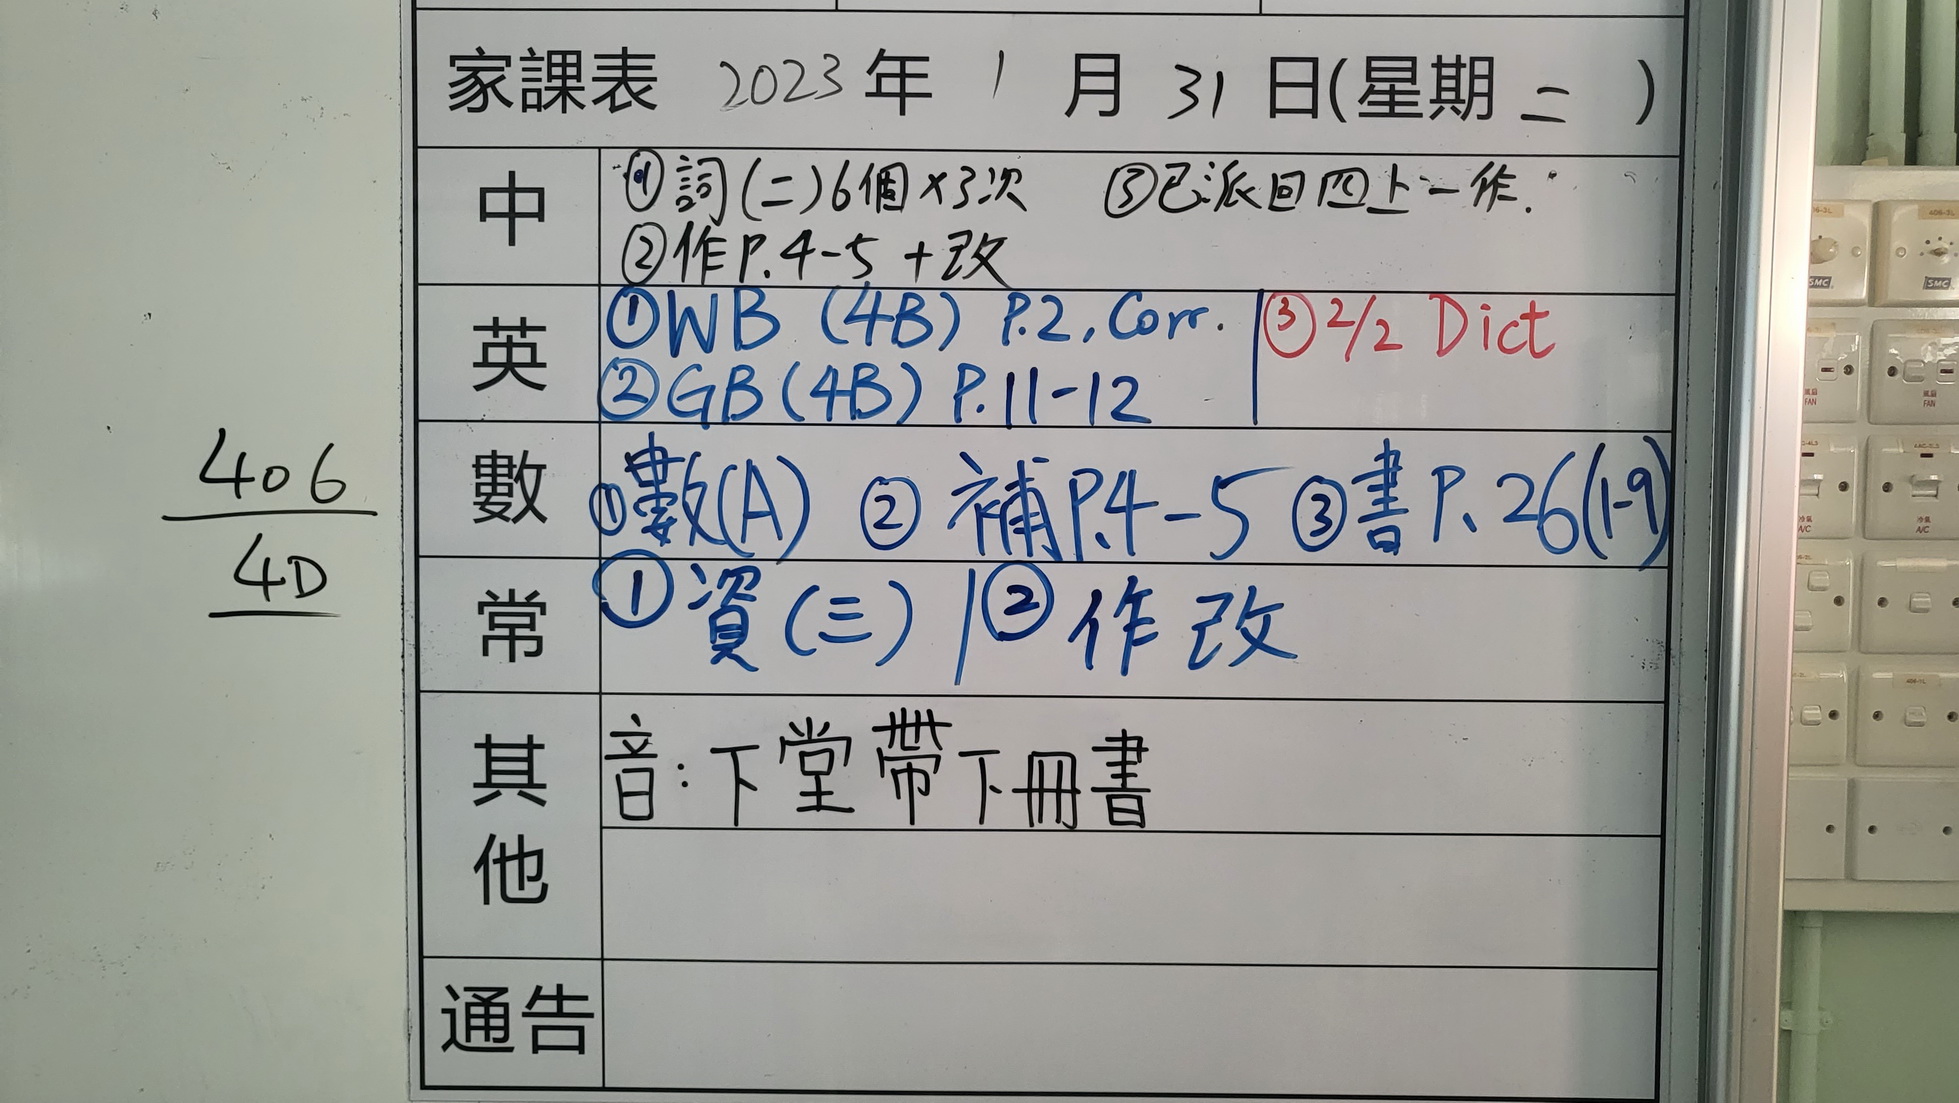 家課表 2023年 1月 31日(星期二)
中
①詞(二)6個×3次 ③已派回四上一作.
②作P.4-5 +改
英
①WB (4B) P.2, Corr. ③2/2 Dict
②GB (4B) P.11-12
數
①數(A) ②補P.4-5 ③書P.26(1-9)
常
①資(三) ②作改
其他
音:下堂帶下冊書
通告
406
4D
SMC
SMC
風扇
FAN
風扇
FAN
冷氣
A/C
冷氣
A/C